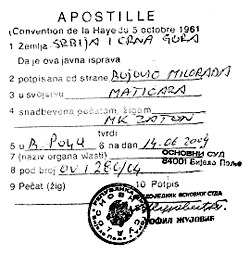 APOSTILLE
(Convention de la Haye du 5 octobre 1961
1 Zemlja SRBIJA I CRNA GORA
Da je ova javna isprava
2 potpisana od strane BUJOVIĆ MILORADA
3 u svojstvu MATIČARA
4 snadbevena pečatom, žigom
MK ZATON
tvrdi
5 u B. Polju 6 na dan 14.06 2004
7 (naziv organa vlasti) ОСНОВНИ СУД
84001 Бијело Поље
8 pod broj OV I 286/04
9 Pečat (žig) 10 Potpis